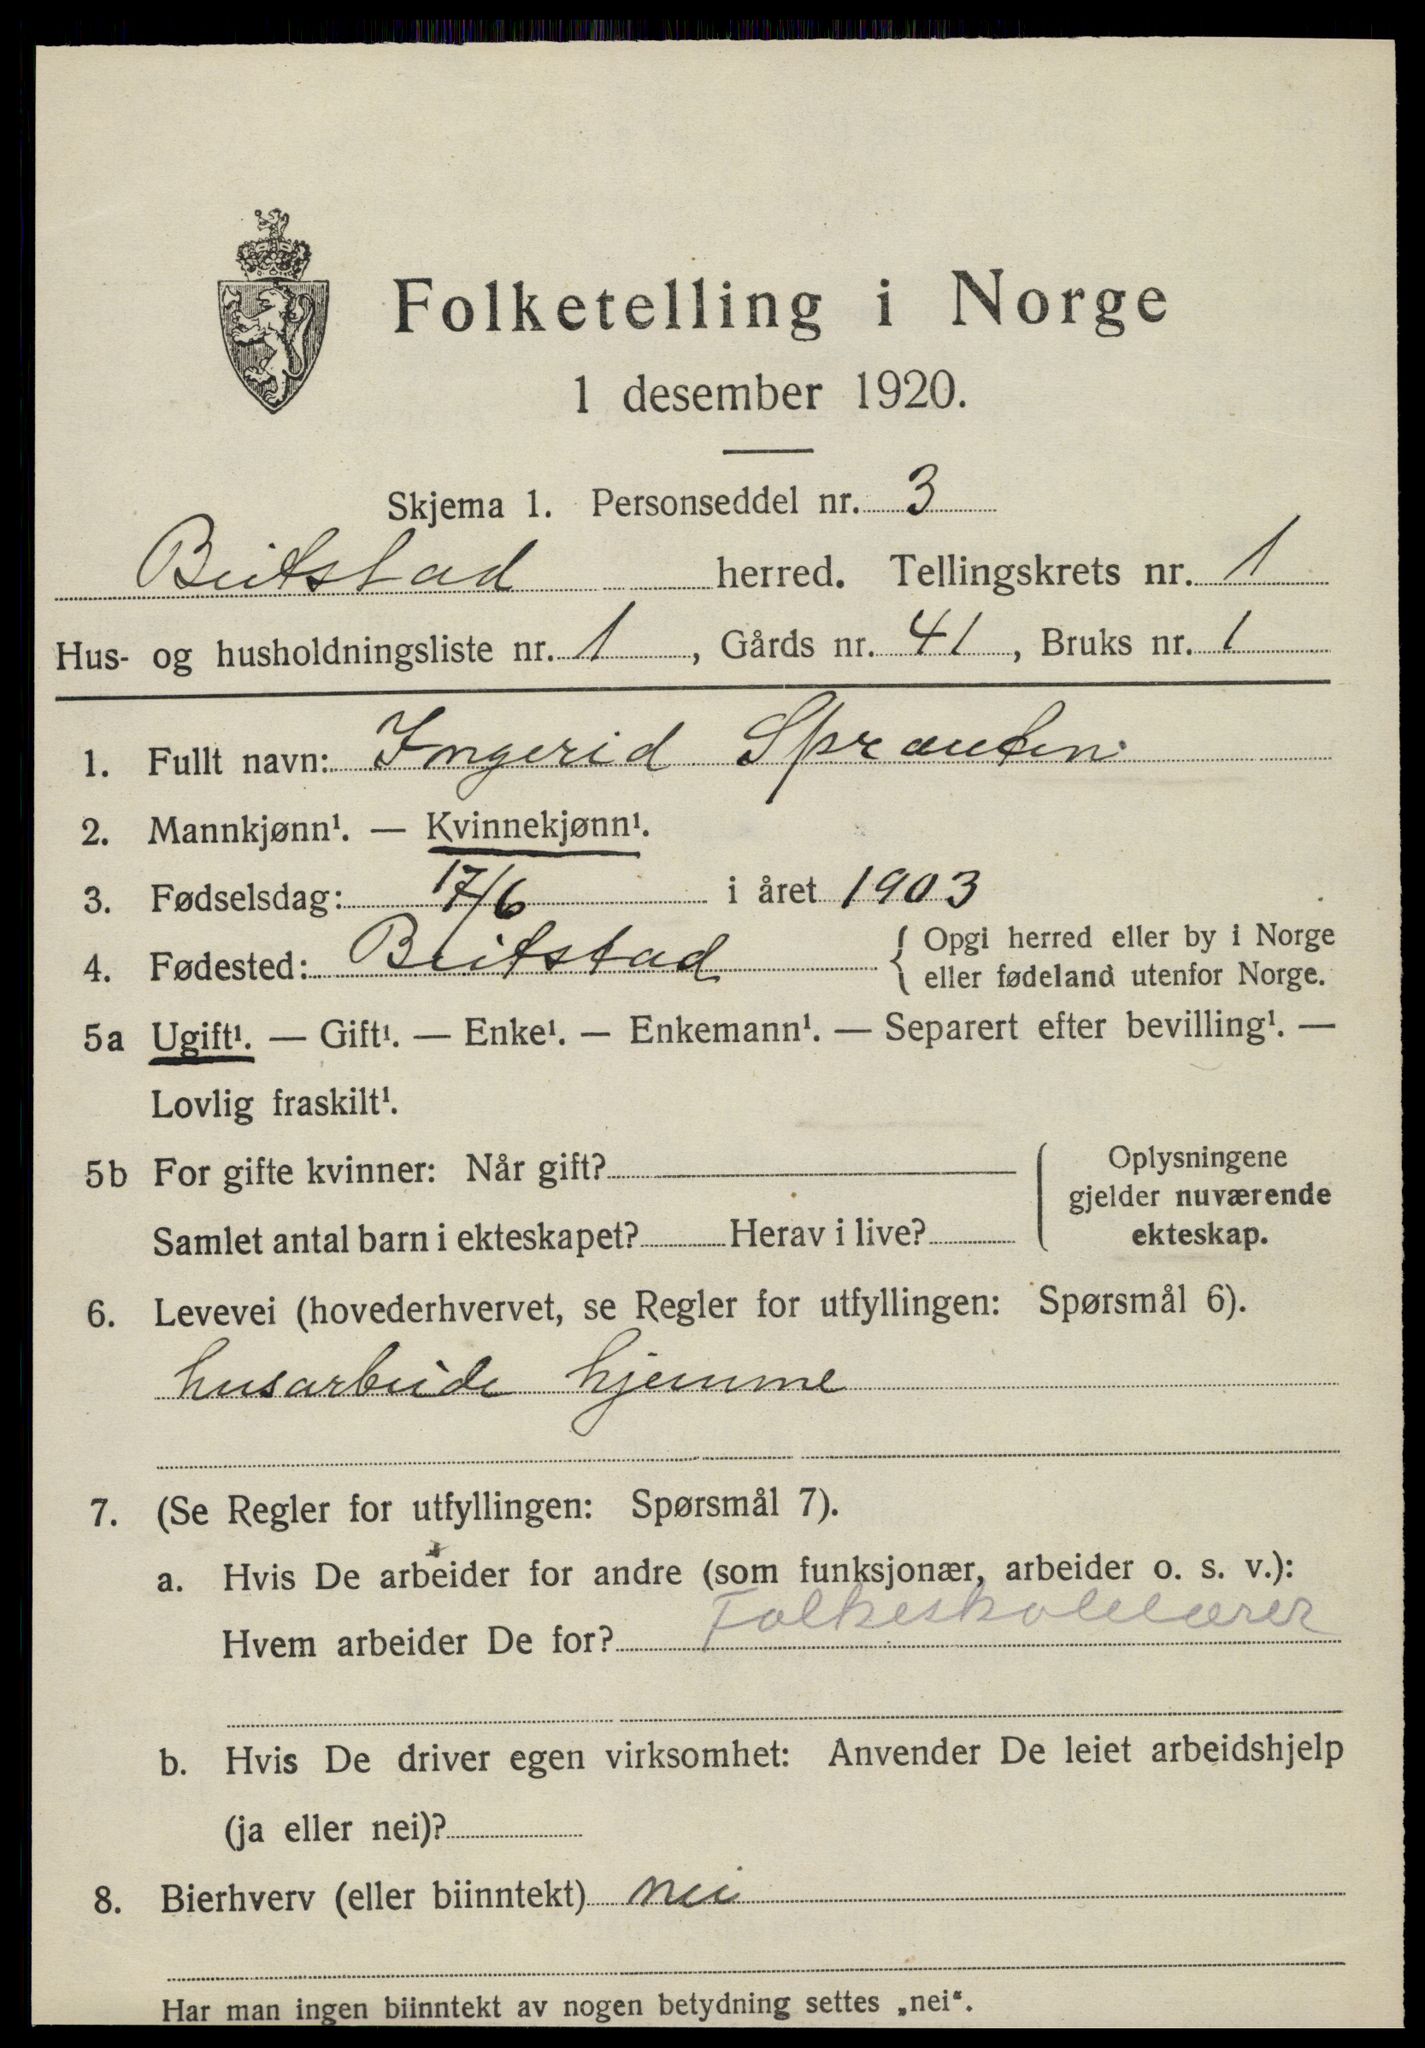 Folketelling i Norge
1 desember 1920.
Skjema 1. Personseddel nr. 3
Beitstad herred. Tellingskrets nr. 1
Hus- og husholdningsliste nr. 1, Gårds nr. 41, Bruks nr. 1
1. Fullt navn: Ingerid Sprauten
2. Mannkjønn¹. — Kvinnekjønn¹.
3. Fødselsdag: 17/6 i året 1903
4. Fødested: Beitstad { Opgi herred eller by i Norge
eller fødeland utenfor Norge.
5a Ugift¹. — Gift¹. — Enke¹. — Enkemann¹. — Separert efter bevilling¹. —
Lovlig fraskilt¹.
5b For gifte kvinner: Når gift?
Samlet antal barn i ekteskapet? Herav i live?
Oplysningene
gjelder nuværende
ekteskap.
6. Levevei (hovederhvervet, se Regler for utfyllingen: Spørsmål 6).
husarbeide hjemme
7. (Se Regler for utfyllingen: Spørsmål 7).
a. Hvis De arbeider for andre (som funksjonær, arbeider o. s. v.):
Hvem arbeider De for? Folkeskolelærer
b. Hvis De driver egen virksomhet: Anvender De leiet arbeidshjelp
(ja eller nei)?
8. Bierhverv (eller biinntekt) nei
Har man ingen biinntekt av nogen betydning settes „nei“.